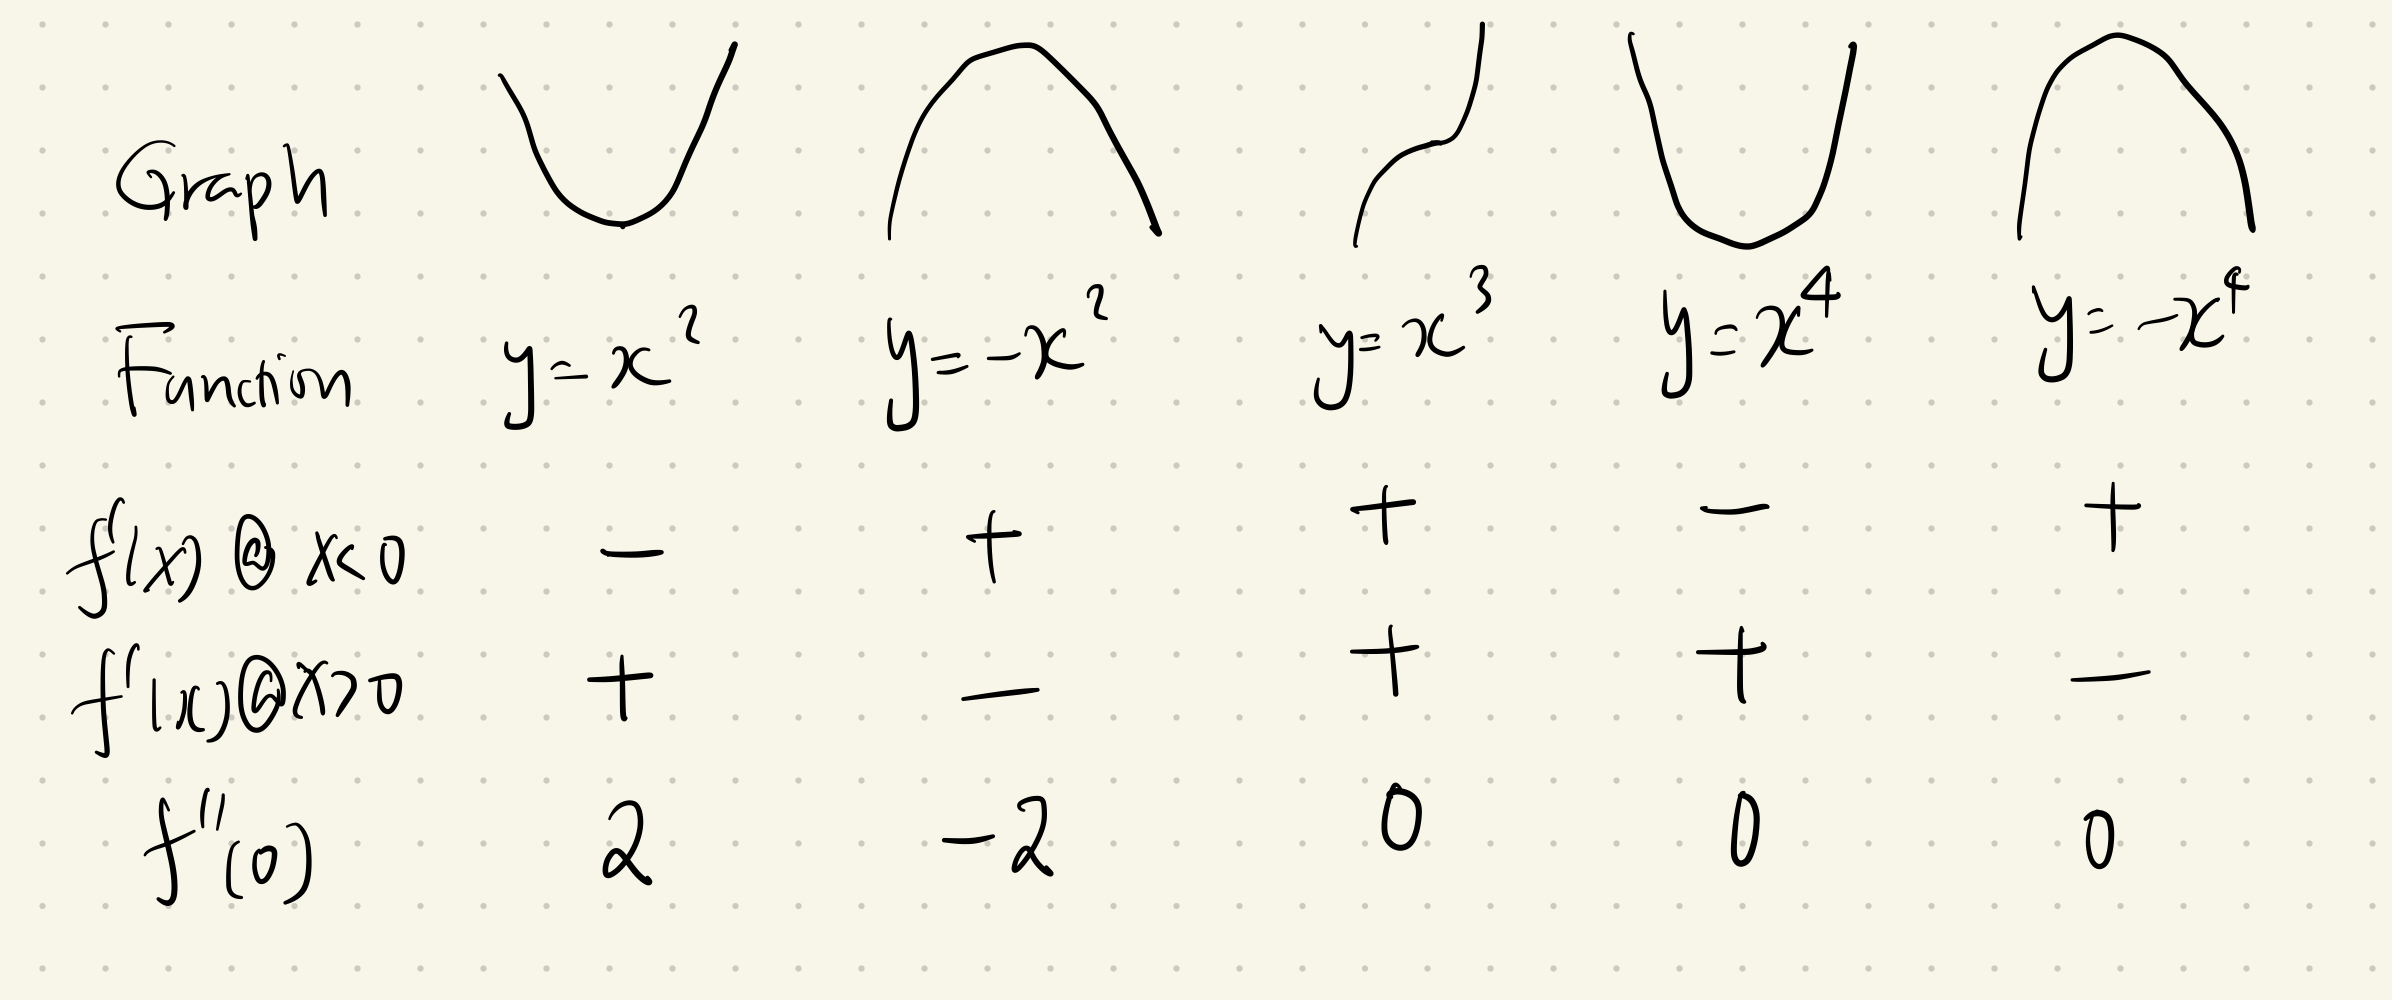 Graph
Function y=x² y=-x² y=x³ y=x⁴ y=-x⁴
f'(x)@x<0 - + + - +
f'(x)@x>0 + - + + -
f''(0) 2 -2 0 0 0